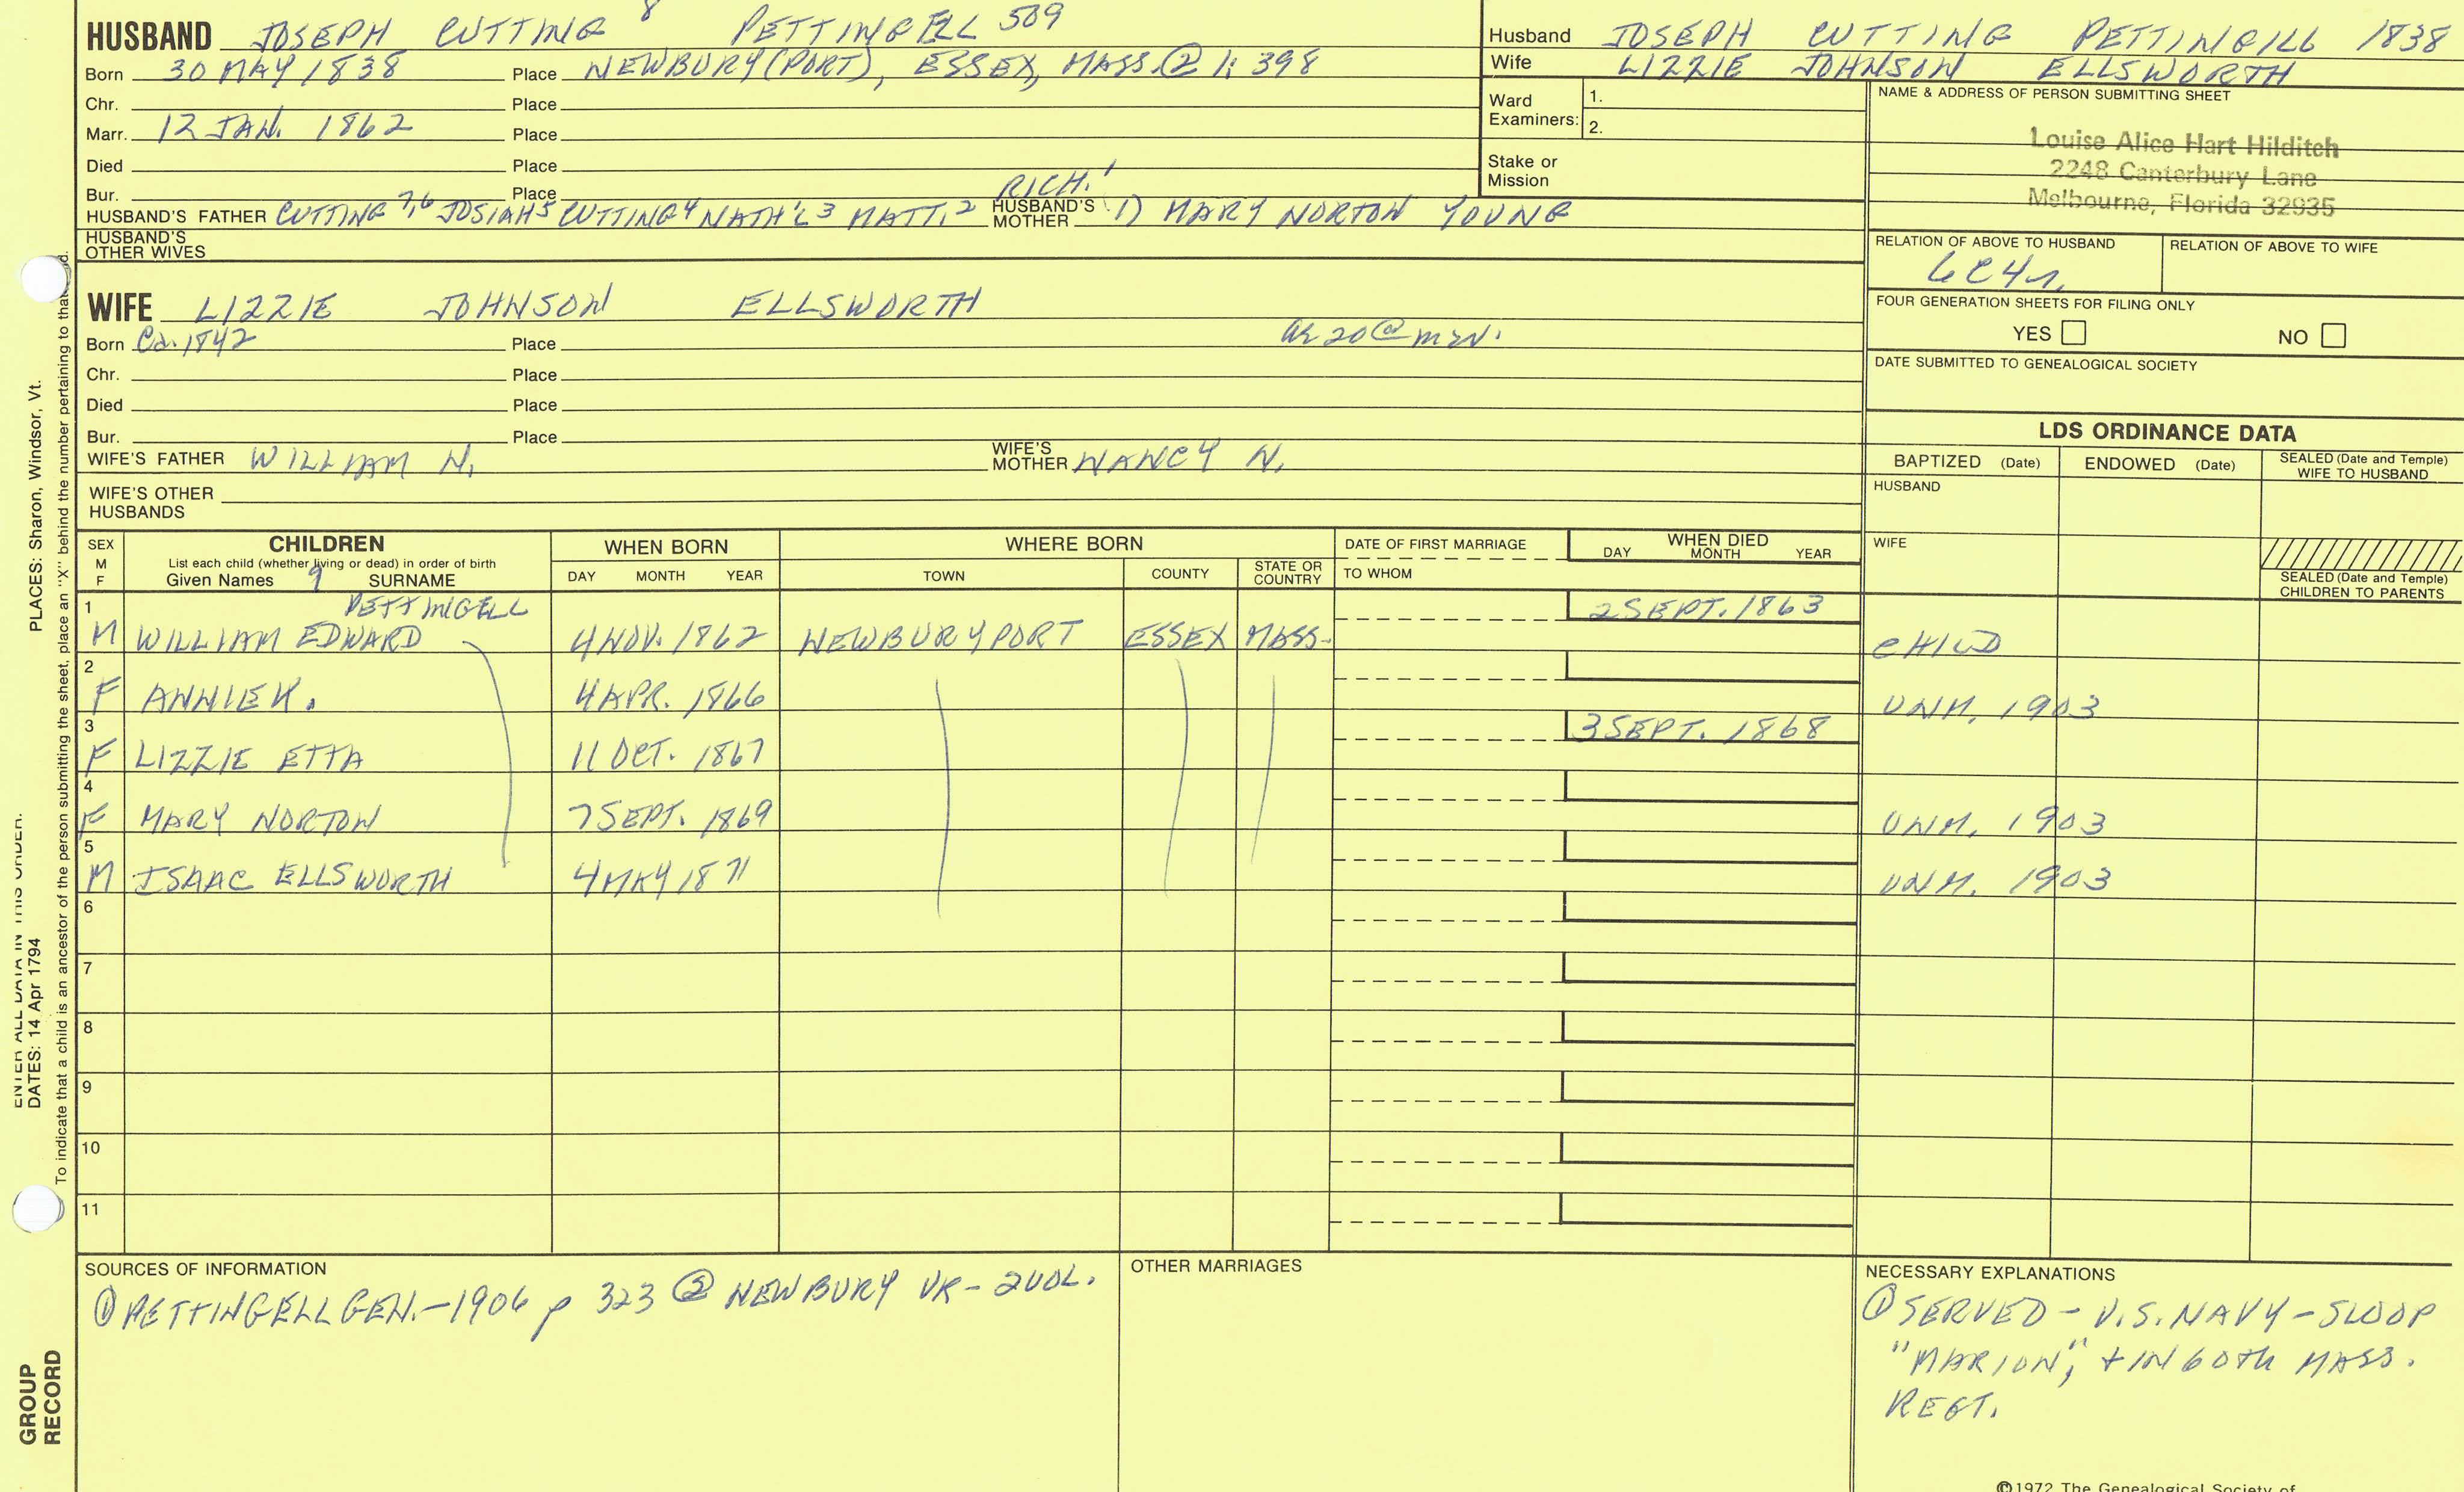 HUSBAND JOSEPH CUTTING 8 PETTINGELL 509
Born 30 MAY 1838 Place NEWBURY(PORT), ESSEX, MASS. ② 1: 398
Chr. Place
Marr. 12 JAN. 1862 Place
Died Place
Bur. Place
RICH. 1
HUSBAND'S FATHER CUTTING 7,6 JOSIAH 5 CUTTING 4 NATH'L 3 MATT. 2 HUSBAND'S MOTHER (1) MARY NORTON YOUNG
HUSBAND'S OTHER WIVES
WIFE LIZZIE JOHNSON ELLSWORTH
Born Ca. 1842 Place ae 20 @ m
Chr. Place
Died Place
Bur. Place
WIFE'S FATHER WILLIAM N. WIFE'S MOTHER NANCY N.
WIFE'S OTHER HUSBANDS
Husband JOSEPH CUTTING PETTINGILL 1838
Wife LIZZIE JOHNSON ELLSWORTH
Ward Examiners: 1.
2.
Stake or Mission
NAME & ADDRESS OF PERSON SUBMITTING SHEET
Louise Alice Hart Hilditch
2248 Canterbury Lane
Melbourne, Florida 32935
RELATION OF ABOVE TO HUSBAND RELATION OF ABOVE TO WIFE
6C4r.
FOUR GENERATION SHEETS FOR FILING ONLY
YES NO
DATE SUBMITTED TO GENEALOGICAL SOCIETY
LDS ORDINANCE DATA
BAPTIZED (Date) ENDOWED (Date) SEALED (Date and Temple) WIFE TO HUSBAND
HUSBAND
WIFE
SEALED (Date and Temple) CHILDREN TO PARENTS
SEX M F CHILDREN WHEN BORN WHERE BORN DATE OF FIRST MARRIAGE WHEN DIED
List each child (whether living or dead) in order of birth
Given Names 9 SURNAME DAY MONTH YEAR TOWN COUNTY STATE OR COUNTRY TO WHOM DAY MONTH YEAR
1 PETTINGELL 2 SEPT. 1863
M WILLIAM EDWARD 4 NOV. 1862 NEWBURYPORT ESSEX MASS. CHILD
2
F ANNIE K. 4 APR. 1866 UNM. 1903
3 3 SEPT. 1868
F LIZZIE ETTA 11 OCT. 1867
4
F MARY NORTON 7 SEPT. 1869 UNM. 1903
5
M ISAAC ELLSWORTH 4 MAY 1871 UNM. 1903
6
7
8
9
10
11
SOURCES OF INFORMATION
① PETTINGELL GEN.-1906 p 323 ② NEWBURY VR-2VOL.
OTHER MARRIAGES
NECESSARY EXPLANATIONS
① SERVED - U.S. NAVY - SLOOP
"MARION", + IN 60th MASS.
REGT.
©1972 The Genealogical Society of
PLACES: Sharon, Windsor, Vt.
ENTER ALL DATA IN THIS ORDER:
DATES: 14 Apr 1794
To indicate that a child is an ancestor of the person submitting the sheet, place an "X" behind the number pertaining to that
GROUP
RECORD